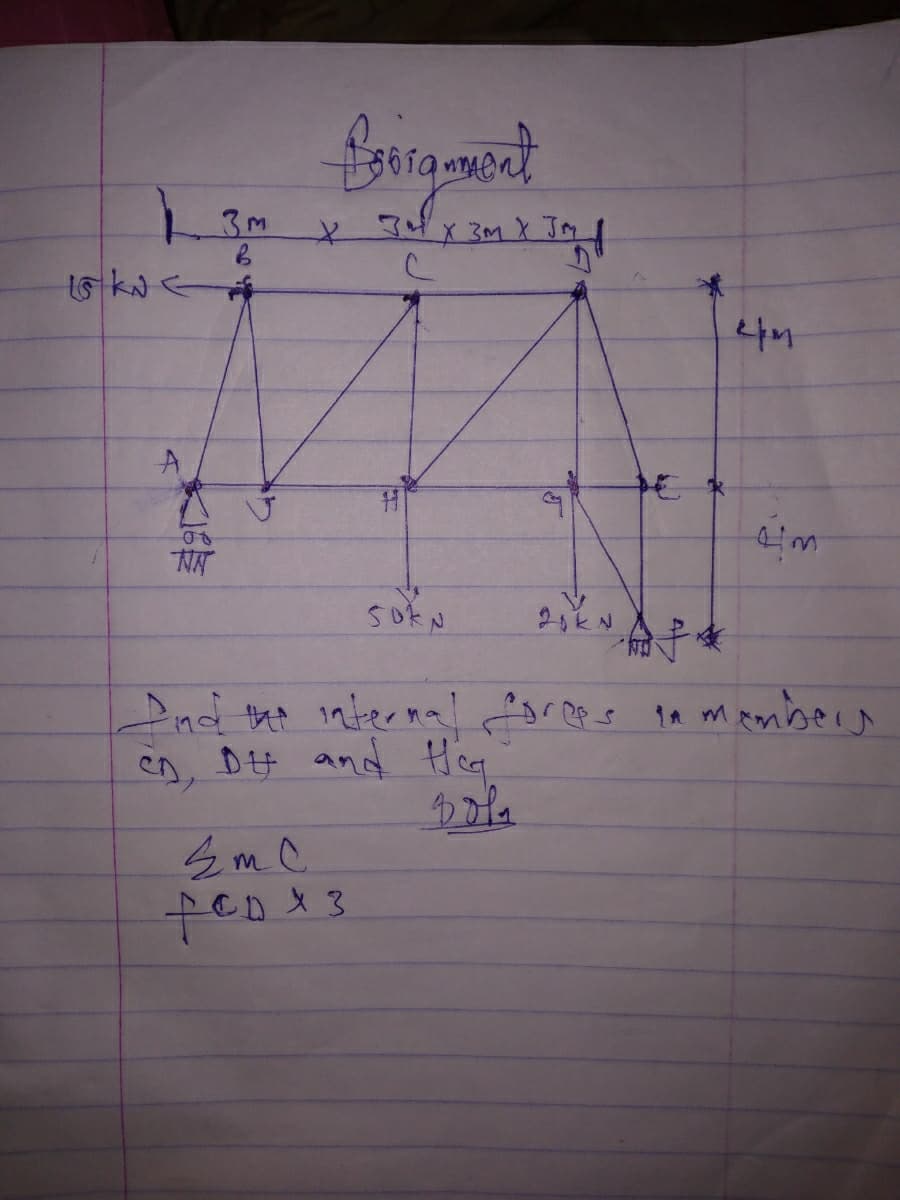 Assignment
3m x 3m x 3m x 3m
B C D
15 kN
4m
A J H G E
4m
50kN 20kN F
find the internal forces in members
CD, DH and HG
Soln
ΣmC
FCD x 3